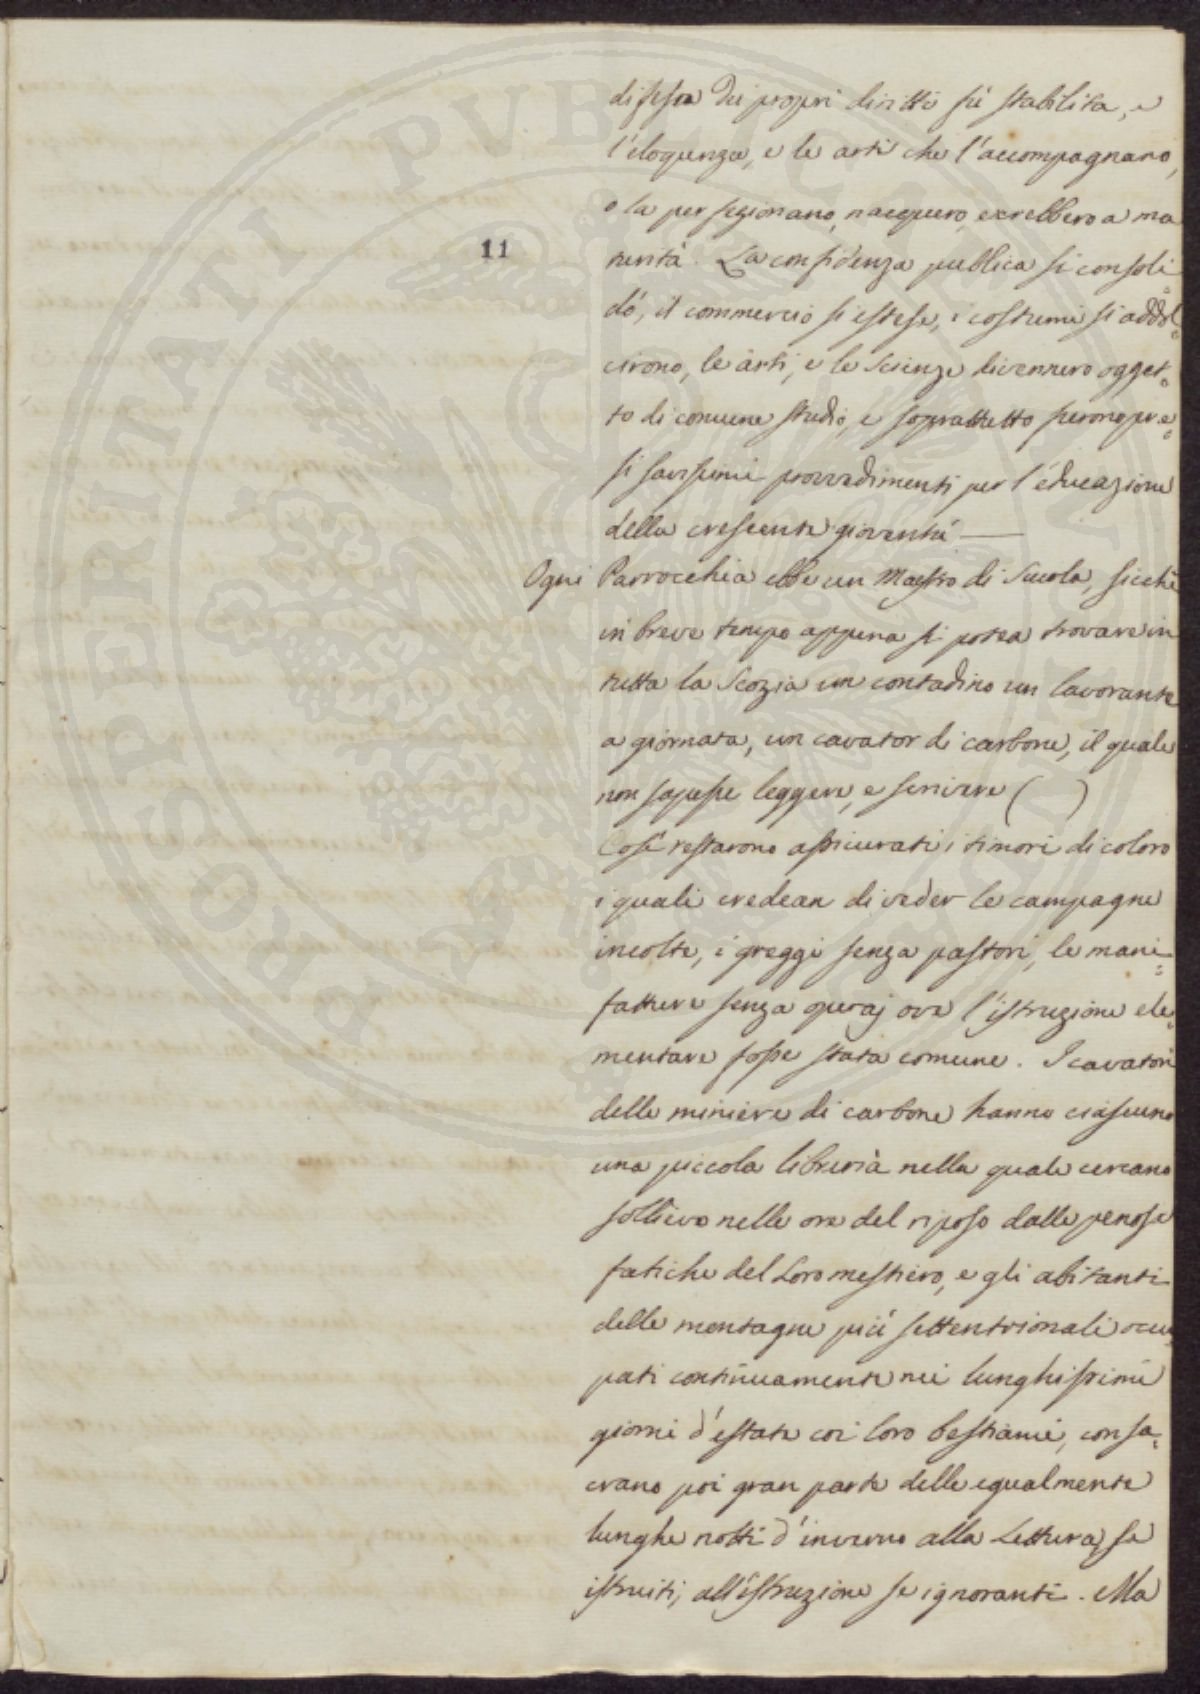 difesa dei propri diritti fù stabilita, e
l'eloquenza, e le arti che l'accompagnano,
o la perfezionano, nacquero, e crebbero a ma
turità. La confidenza publica si consoli=
11
dò, il commercio si estese, i costumi si addol=
cirono, le arti, e le Scienze divennero ogget=
to di comune studio, e soprattutto furono pre=
si savissimi provvedimenti per l'educazione
della crescente gioventù —
Ogni Parrocchia ebbe un Maestro di Scuola, sicchè
in breve tempo appena si potea trovare in
tutta la Scozia un contadino un lavorante
a giornata, un cavator di carbone, il quale
non sapesse leggere, e scrivere ( )
Così restarono assicurati i timori di coloro
i quali credean di veder le campagne
incolte, i greggi senza pastori, le mani=
fatture senza operaj ove l'istruzione ele=
mentare fosse stata comune. I cavatori
delle miniere di carbone hanno ciascuno
una piccola libreria nella quale cercano
sollievo nelle ore del riposo dalle penose
fatiche del Loro mestiero, e gli abitanti
delle montagne più settentrionali occu
pati continuamente nei lunghissimi
giorni d'estate coi loro bestiami, consa=
crano poi gran parte delle egualmente
lunghe notti d'inverno alla Lettura, se
istruiti; all'istruzione se ignoranti. Ma
PROSPERITATI PVBLICAE